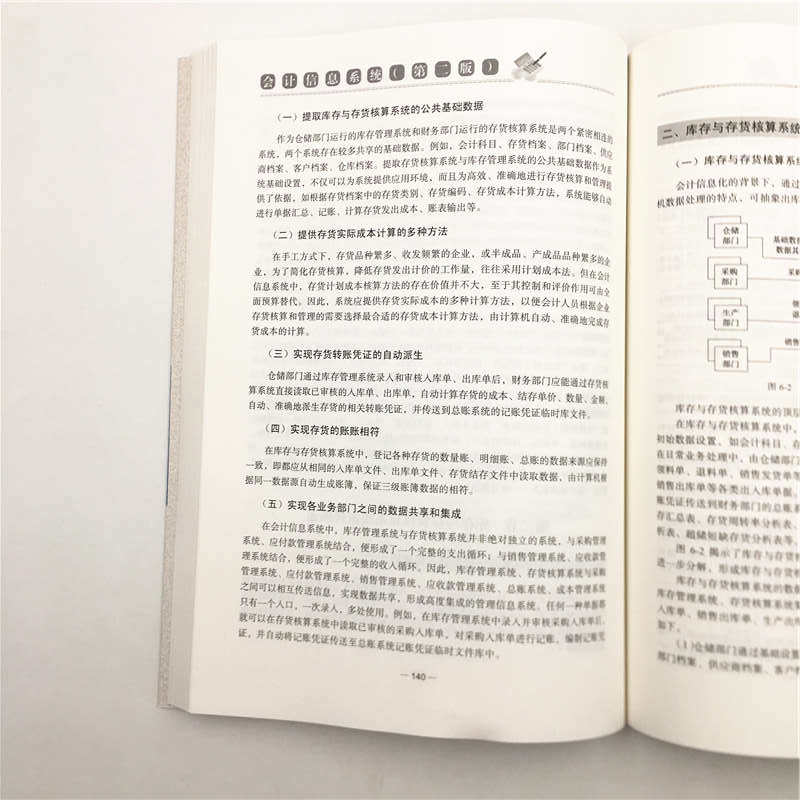 会计信息系统(第二版)
（一）提取库存与存货核算系统的公共基础数据
作为仓储部门运行的库存管理系统和财务部门运行的存货核算系统是两个紧密相连的
系统，两个系统存在较多共享的基础数据。例如，会计科目、存货档案、部门档案、供应
商档案、客户档案、仓库档案。提取存货核算系统与库存管理系统的公共基础数据作为系
统基础设置，不仅可以为系统提供应用环境，而且为高效、准确地进行存货核算和管理提
供了依据，如根据存货档案中的存货类别、存货编码、存货成本计算方法，系统能够自动
进行单据汇总、记账、计算存货发出成本、账表输出等。
（二）提供存货实际成本计算的多种方法
在手工方式下，存货品种繁多、收发频繁的企业，或半成品、产成品品种繁多的企
业，为了简化存货核算，降低存货发出计价的工作量，往往采用计划成本法。但在会计
信息系统中，存货计划成本核算方法的存在价值并不大，至于其控制和评价作用可由全
面预算替代。因此，系统应提供存货实际成本的多种计算方法，以便会计人员根据企业
存货核算和管理的需要选择最合适的存货成本计算方法，由计算机自动、准确地完成存
货成本的计算。
（三）实现存货转账凭证的自动派生
仓储部门通过库存管理系统录入和审核入库单、出库单后，财务部门应能通过存货核
算系统直接读取已审核的入库单、出库单，自动计算存货的成本、结存单价、数量、金额，
自动、准确地派生存货的相关转账凭证，并传送到总账系统的记账凭证临时库文件。
（四）实现存货的账账相符
在库存与存货核算系统中，登记各种存货的数量账、明细账、总账的数据来源应保持
一致，即都应从相同的入库单文件、出库单文件、存货结存文件中读取数据，由计算机根
据同一数据源自动生成账簿，保证三级账簿数据的相符。
（五）实现各业务部门之间的数据共享和集成
在会计信息系统中，库存管理系统与存货核算系统并非绝对独立的系统，与采购管理
系统、应付款管理系统结合，便形成了一个完整的支出循环；与销售管理系统、应收款管
理系统结合，便形成了一个完整的收入循环。因此，库存管理系统、存货核算系统与采购
管理系统、应付款管理系统、销售管理系统、应收款管理系统、总账系统、成本管理系统
之间可以相互传送信息，实现数据共享，形成高度集成的管理信息系统。任何一种单据都
只有一个入口，一次录入，多处使用。例如，在库存管理系统中录入并审核采购入库单后，
就可以在存货核算系统中读取已审核的采购入库单，对采购入库单进行记账、编制记账凭
证，并自动将记账凭证传送至总账系统记账凭证临时文件库中。
— 140 —
二、库存与存货核算系统
（一）库存与存货核算系
会计信息化的背景下，通过
机数据处理的特点，可抽象出库
仓储
部门
基础数
数据其
采购
部门
采购
生产
部门
领
退
销售
部门
销售
图 6-2
库存与存货核算系统的顶层
在库存与存货核算系统中，
初始数据设置，如会计科目、存
在日常业务处理中，由仓储部门
领料单、退料单、销售发货单等
销售出库单等各类出入库单据。
账凭证传送到财务部门的总账系
存汇总表、存货周转率分析表、
析表、超储短缺存货分析表等。
图 6-2 揭示了库存与存货
进一步分解，形成库存与存货
库存与存货核算系统的数据
库存管理系统、存货核算系统集
入库单、销售出库单、生产出库
如下。
(1)仓储部门通过基础设置
部门档案、供应商档案、客户档